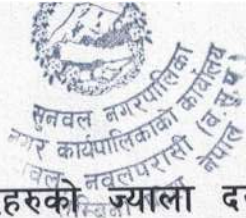 सुनवल नगरपालिका
नगर कार्यपालिकाको कार्यालय
नवलपरासी (ब.सु.प.)
नेपाल
हरुको ज्याला द